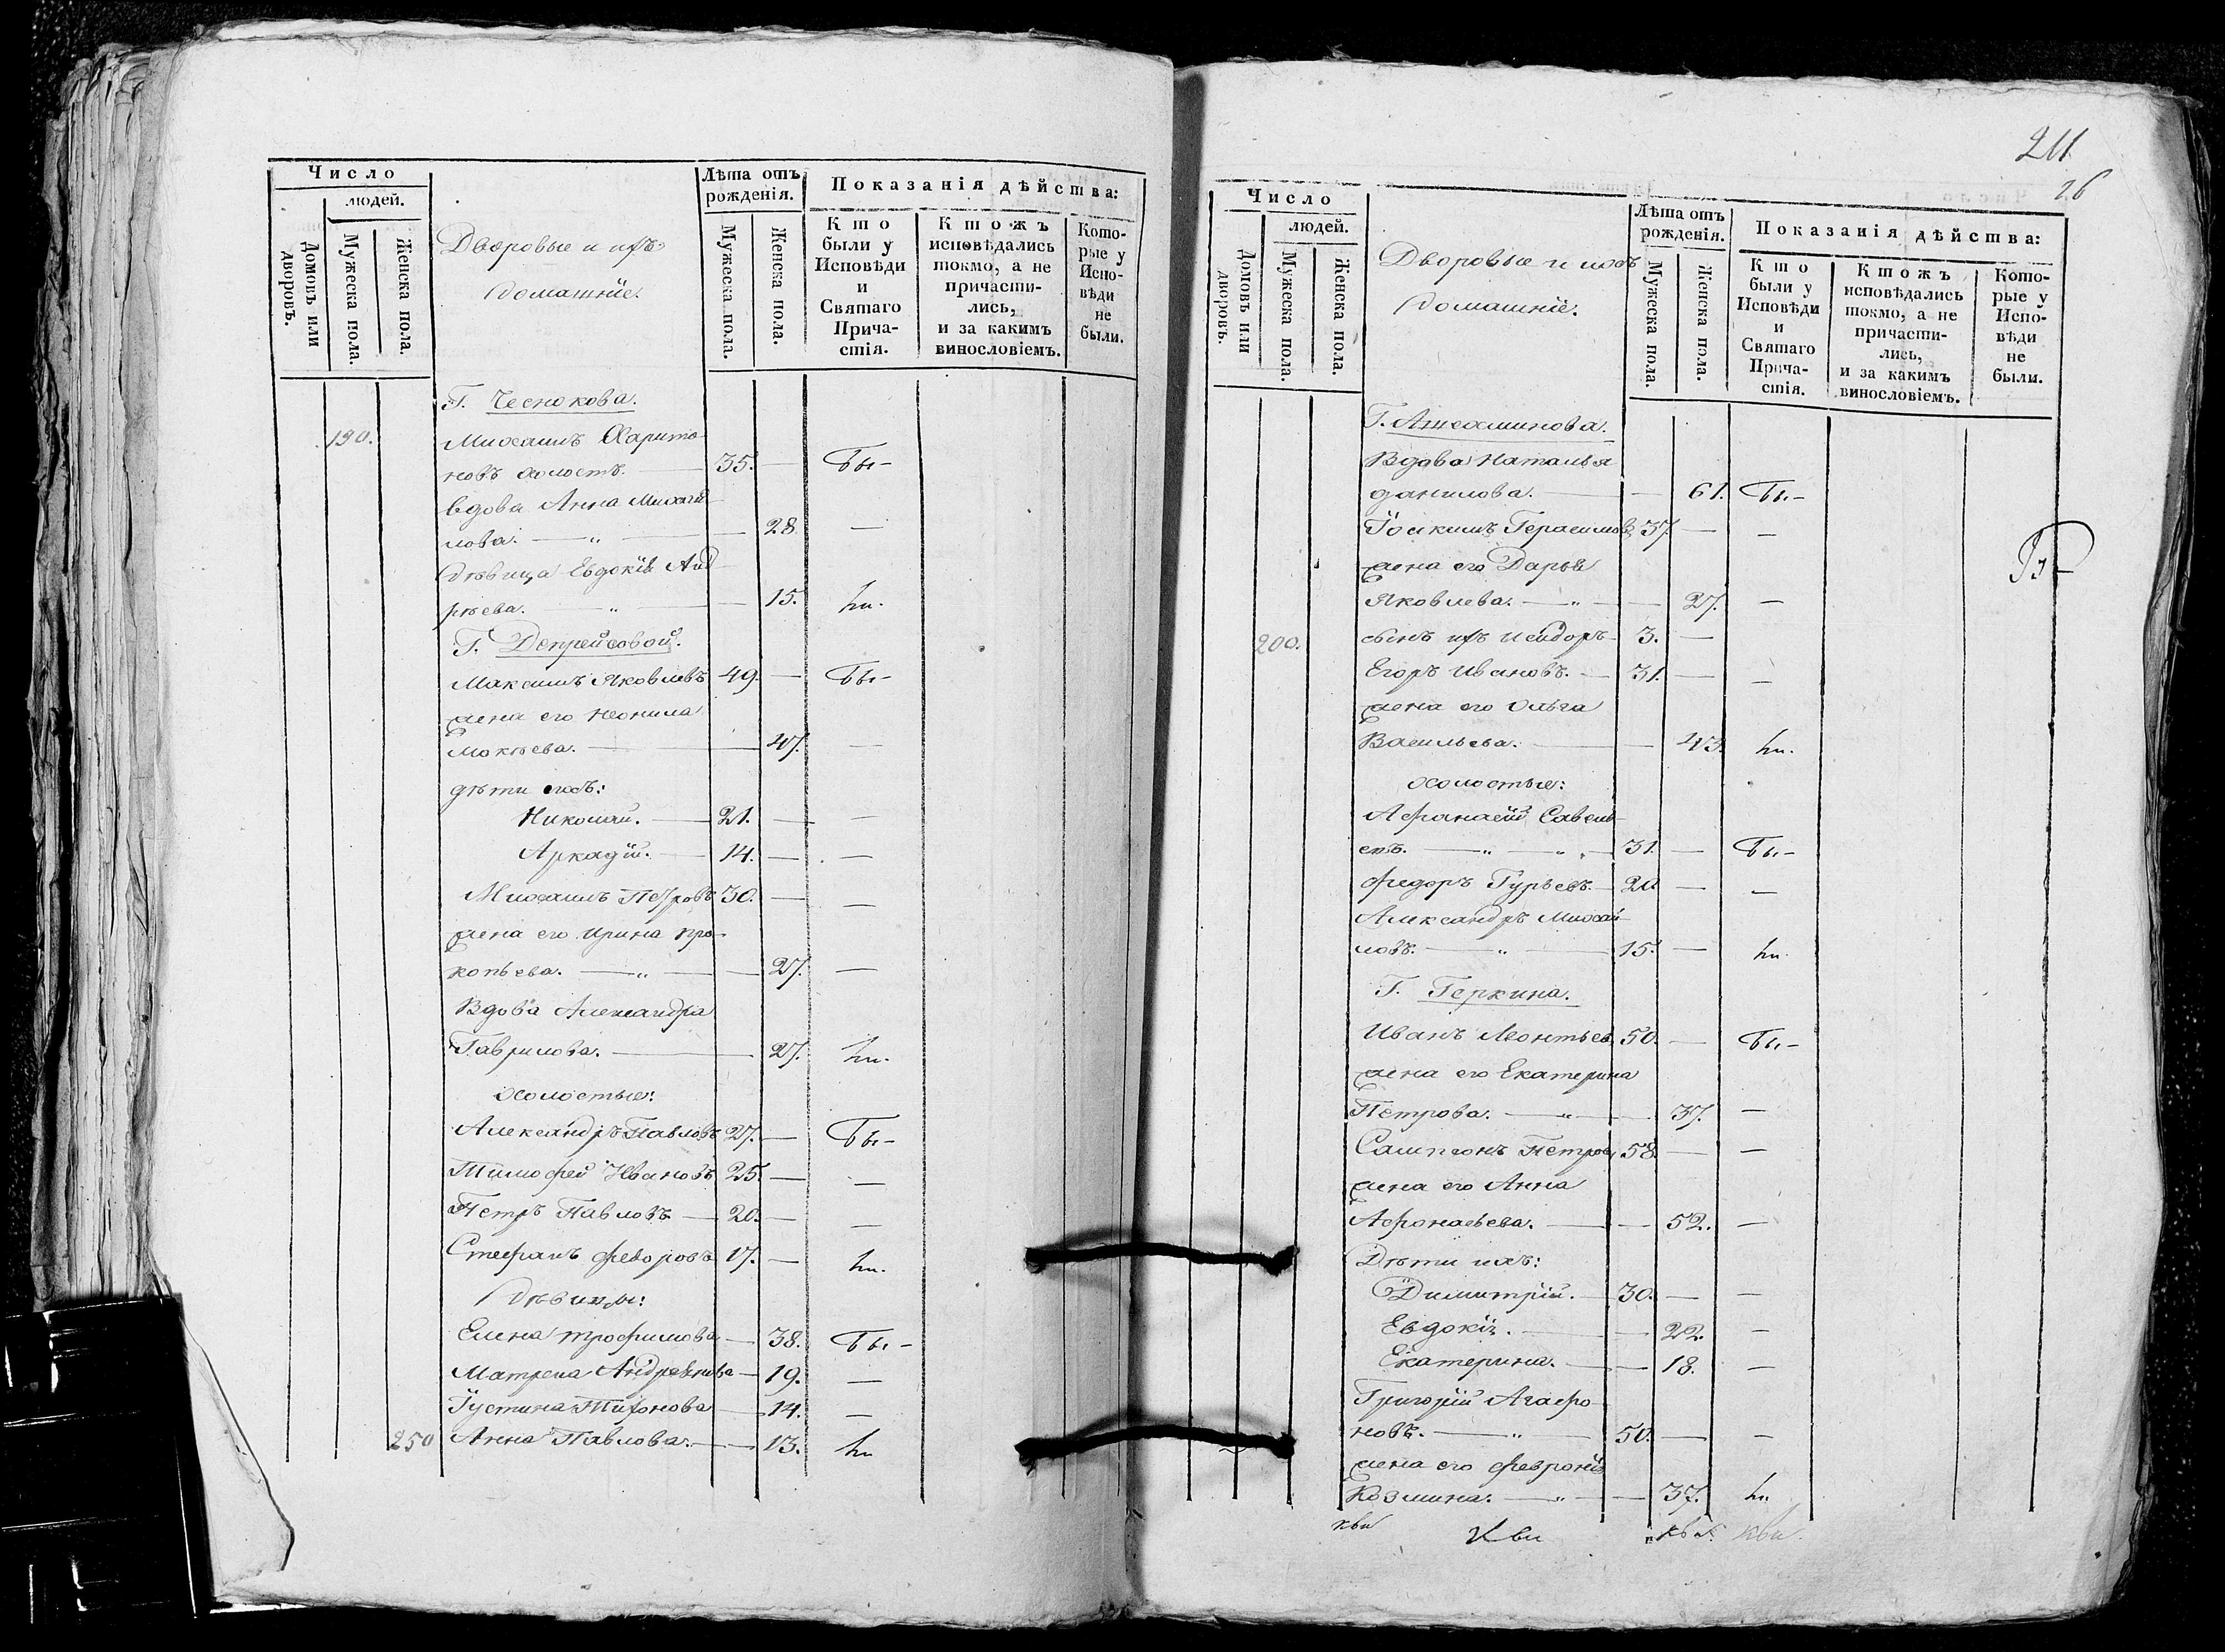 Число
людей.
Домовъ или дворовъ.
Мужеска пола.
Женска пола.
Дворовые и ихъ
домашніе.
Лѣта отъ рожденія.
Мужеска пола.
Женска пола.
Показанія дѣйства:
Кто были у Исповѣди и Святаго Причастія.
Ктожъ исповѣдались токмо, а не причастились, и за какимъ винословіемъ.
Которые у Исповѣди не были.
Г. Чеснокова.
190. Михаилъ Харито-
новъ холостъ. — 35. — бы-
вдова Анна Михай-
лова. — „ — — 28 —
дѣвица Евдокія Анд-
рѣева. — „ — — 15.
Г. Депрейсовой.
Максимъ Яковлевъ 49. — бы-
жена его Неонила
Мокѣева. — — 47. —
дѣти ихъ:
Николай. — 21. — —
Аркадій. — 14. — —
Михаилъ Петровъ 30. — —
жена его Ирина Про-
копьева. — „ — — 27. —
Вдова Александра
Гаврилова. — 27.
холостые:
Александръ Павловъ 27. — бы-
Тимофей Ивановъ 25. — —
Петръ Павловъ — 20. — —
Стефанъ Федоровъ 17. —
Дѣвицы:
Елена Трофимова — 38. бы-
Матрена Андреянова — 19. —
Іустина Тихонова — 14. —
250 Анна Павлова. — — 13.
211
26
Число
людей.
Домовъ или дворовъ.
Мужеска пола.
Женска пола.
Дворовые и ихъ
домашніе.
Лѣта отъ рожденія.
Мужеска пола.
Женска пола.
Показанія дѣйства:
Кто были у Исповѣди и Святаго Причастія.
Ктожъ исповѣдались токмо, а не причастились, и за какимъ винословіемъ.
Которые у Исповѣди не были.
Вдова Наталья
Данилова. — — 61. бы-
Іоакимъ Герасимовъ 37. — —
жена его Дарья
Яковлева. — „ — — 27. —
200. сынъ ихъ Исидоръ — 3. —
Егоръ Ивановъ. — 31. — —
жена его Ольга
Васильева. — — 43.
холостые:
Афанасій Савель-
евъ. — „ — „ — 31. — бы-
Федоръ Гурьевъ. — 20 — —
Александръ Михай-
ловъ. — „ — 15. —
Г. Геркина.
Иванъ Леонтьев 50. — бы-
жена его Екатерина
Петрова. — „ — 37. —
Сампсонъ Петров 58. — —
жена его Анна
Афонасьева. — — 52. —
Дѣти ихъ:
Димитрій. — 30. — —
Евдокія. — — 22. —
Екатерина. — — 18. —
Григорій Агафо-
новъ. — „ — 50. — —
жена его Февронія
Козмина. — „ — — 37.